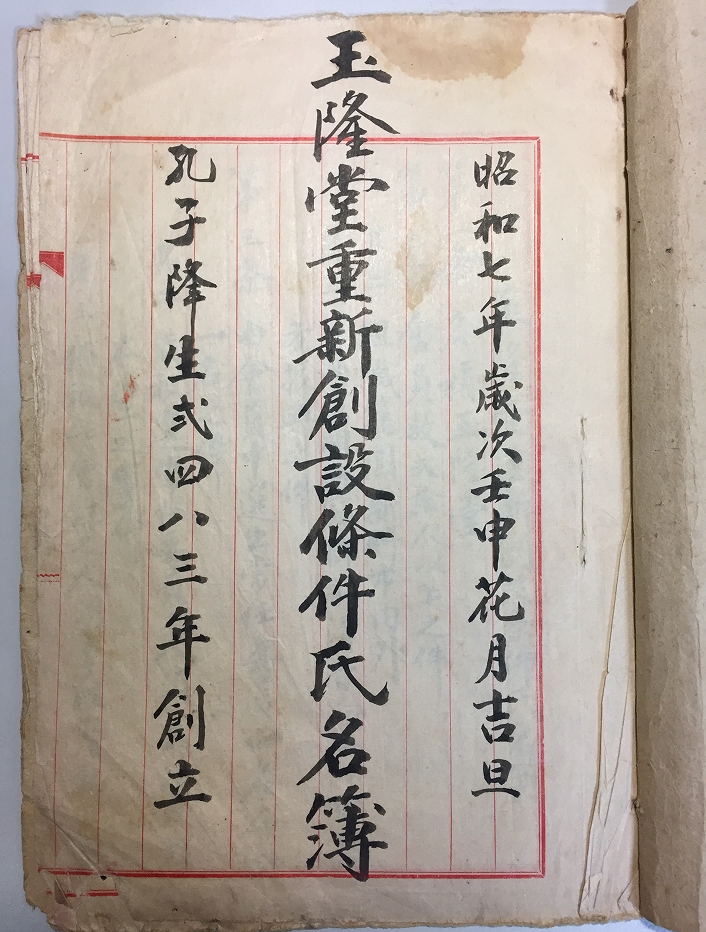 昭和七年歲次壬申花月吉旦
玉隆堂重新創設條件氏名簿
孔子降生弍四八三年創立